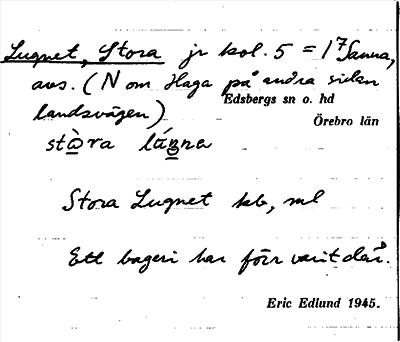 Lugnet, Stora jr kol. 5 = 1⁷ Sanna,
avs. (N om Haga på andra sidan
landsvägen)
Edsbergs sn o. hd
Örebro län
stora
Stora Lugnet kb, ml
Ett bageri har förr varit där.
Eric Edlund 1945.